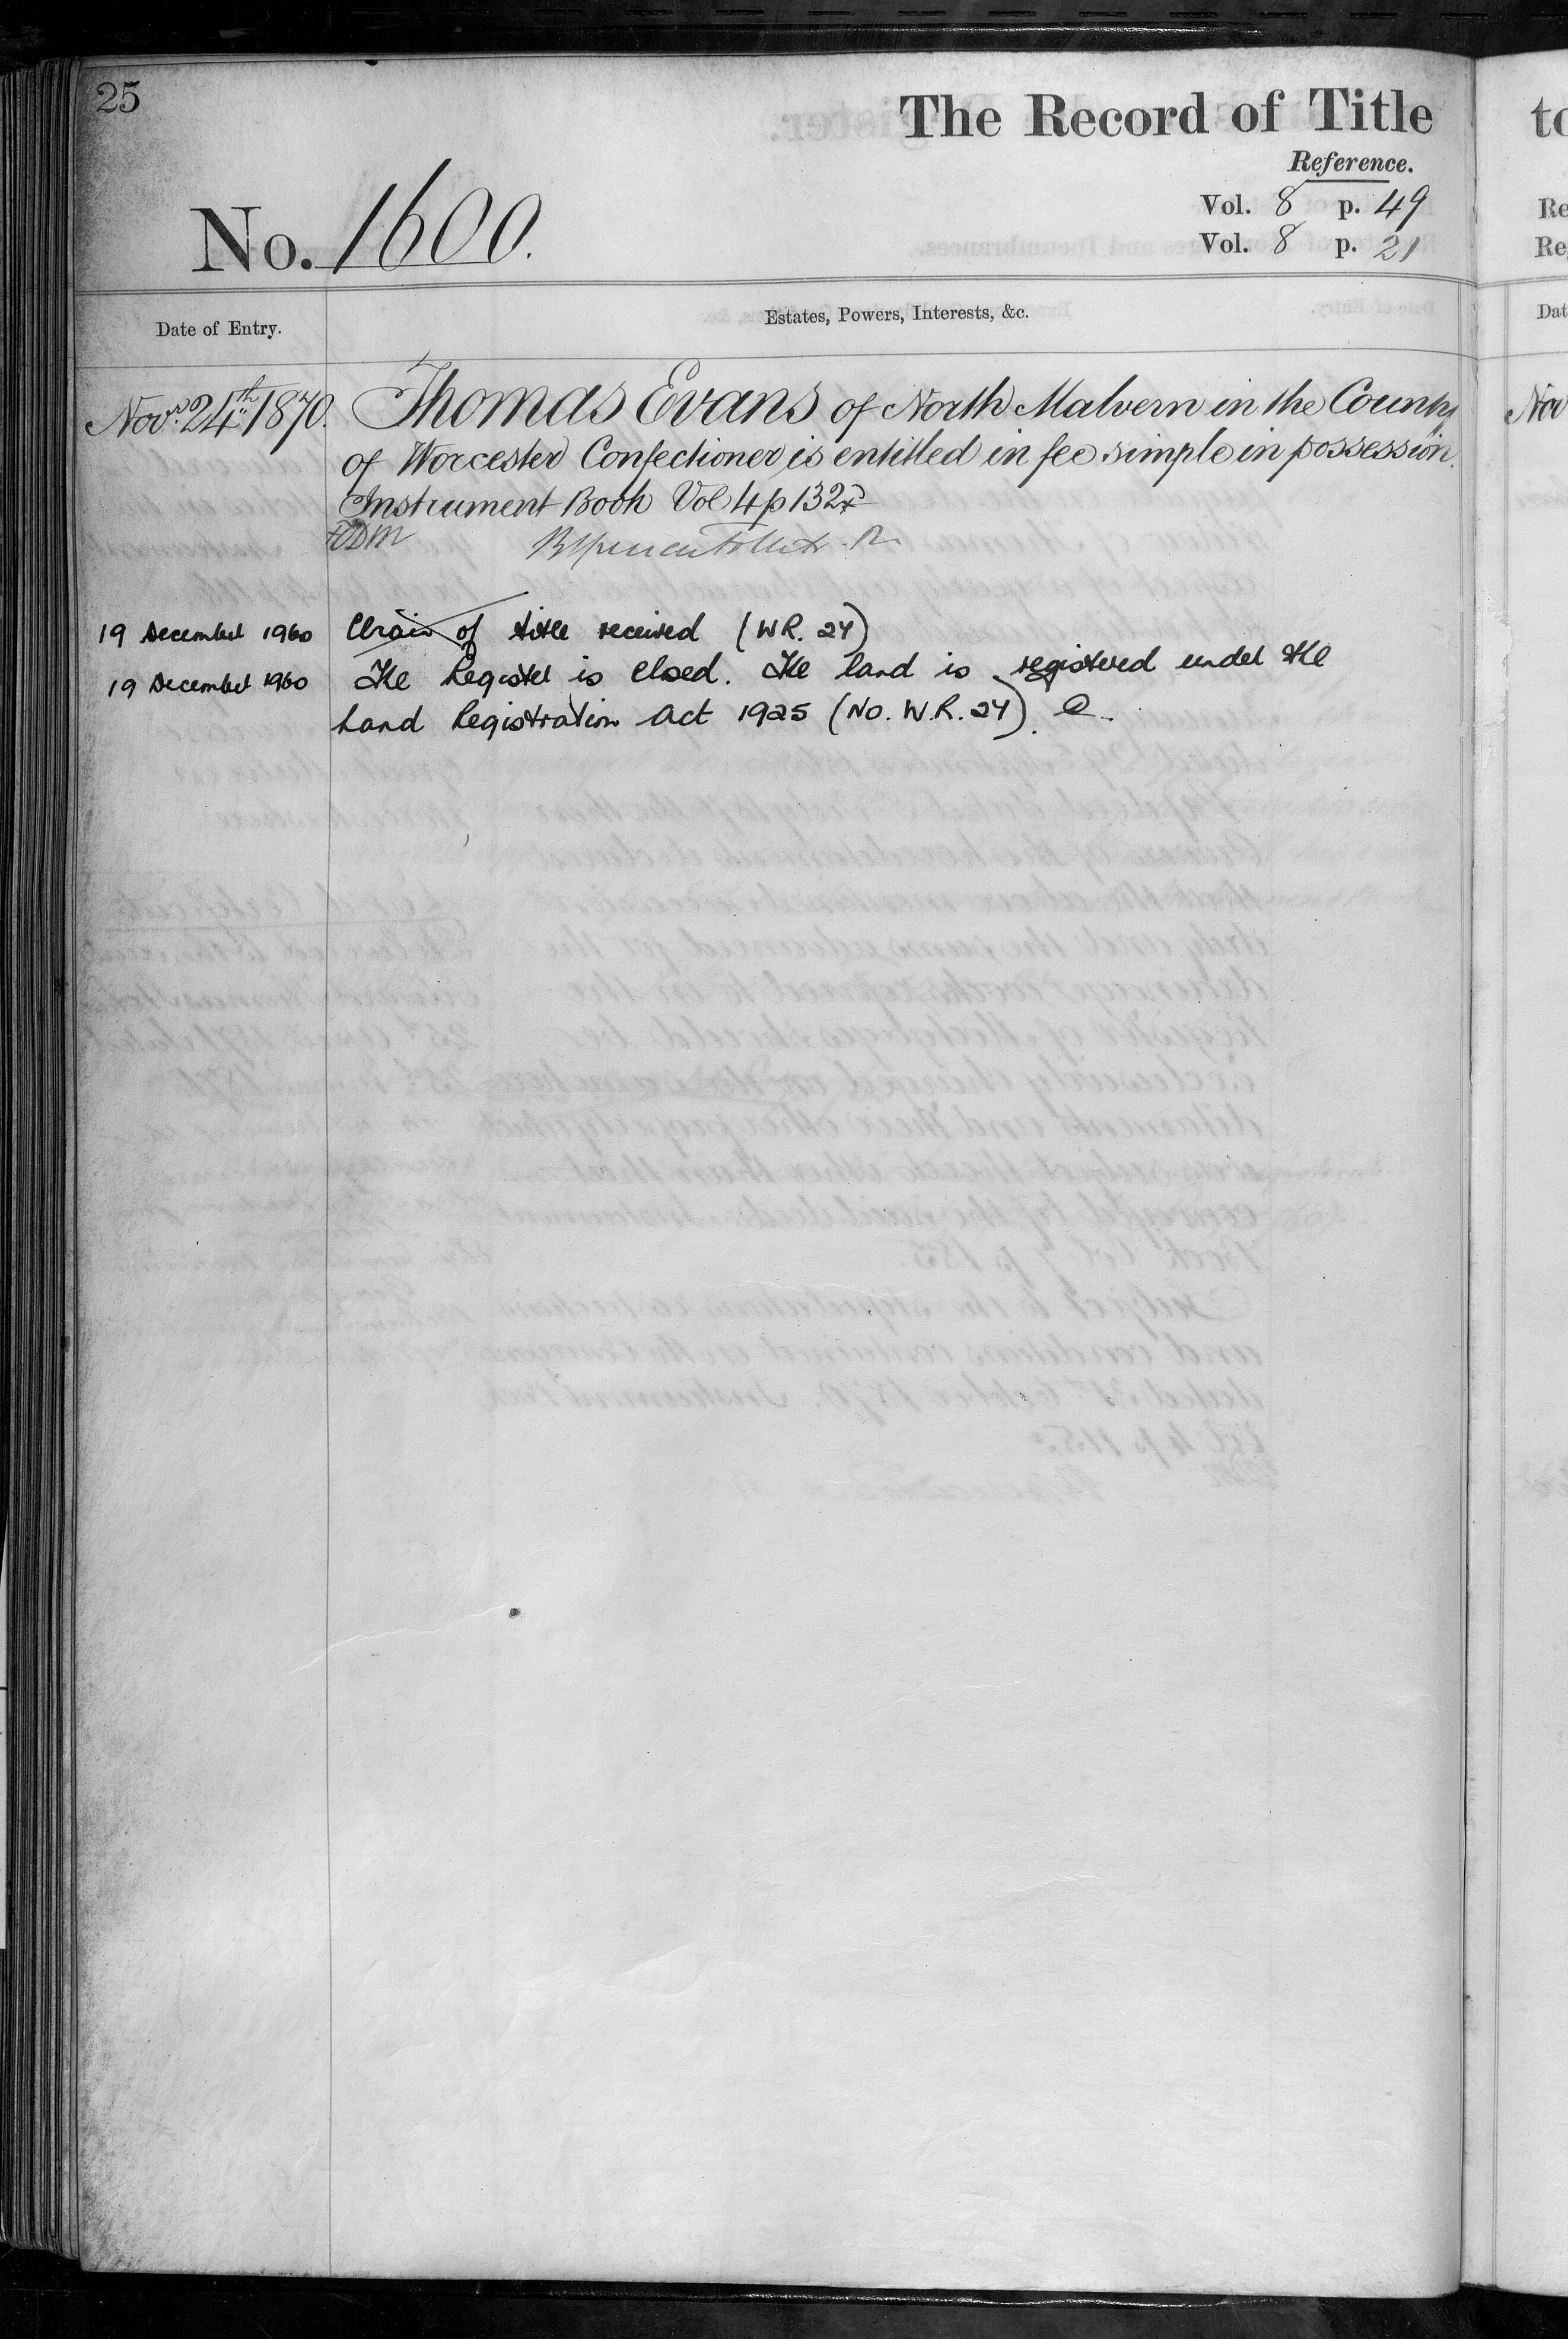 25
The Record of Title
Reference.
Vol. 8 p. 49
No. 1600.
Vol. 8 p. 21
Date of Entry.
Estates, Powers, Interests, &c.
Novr. 24th 1870. Thomas Evans of North Malvern in the County
of Worcester Confectioner is entitled in fee simple in possession.
Instrument Book Vol 4 p 132
19 December 1960 Chain of title received (WR. 24)
19 December 1960 The Register is closed. The land is registered under the
Land Registration Act 1925 (No. W.R. 24).
to
Re
Re
Dat
Nov